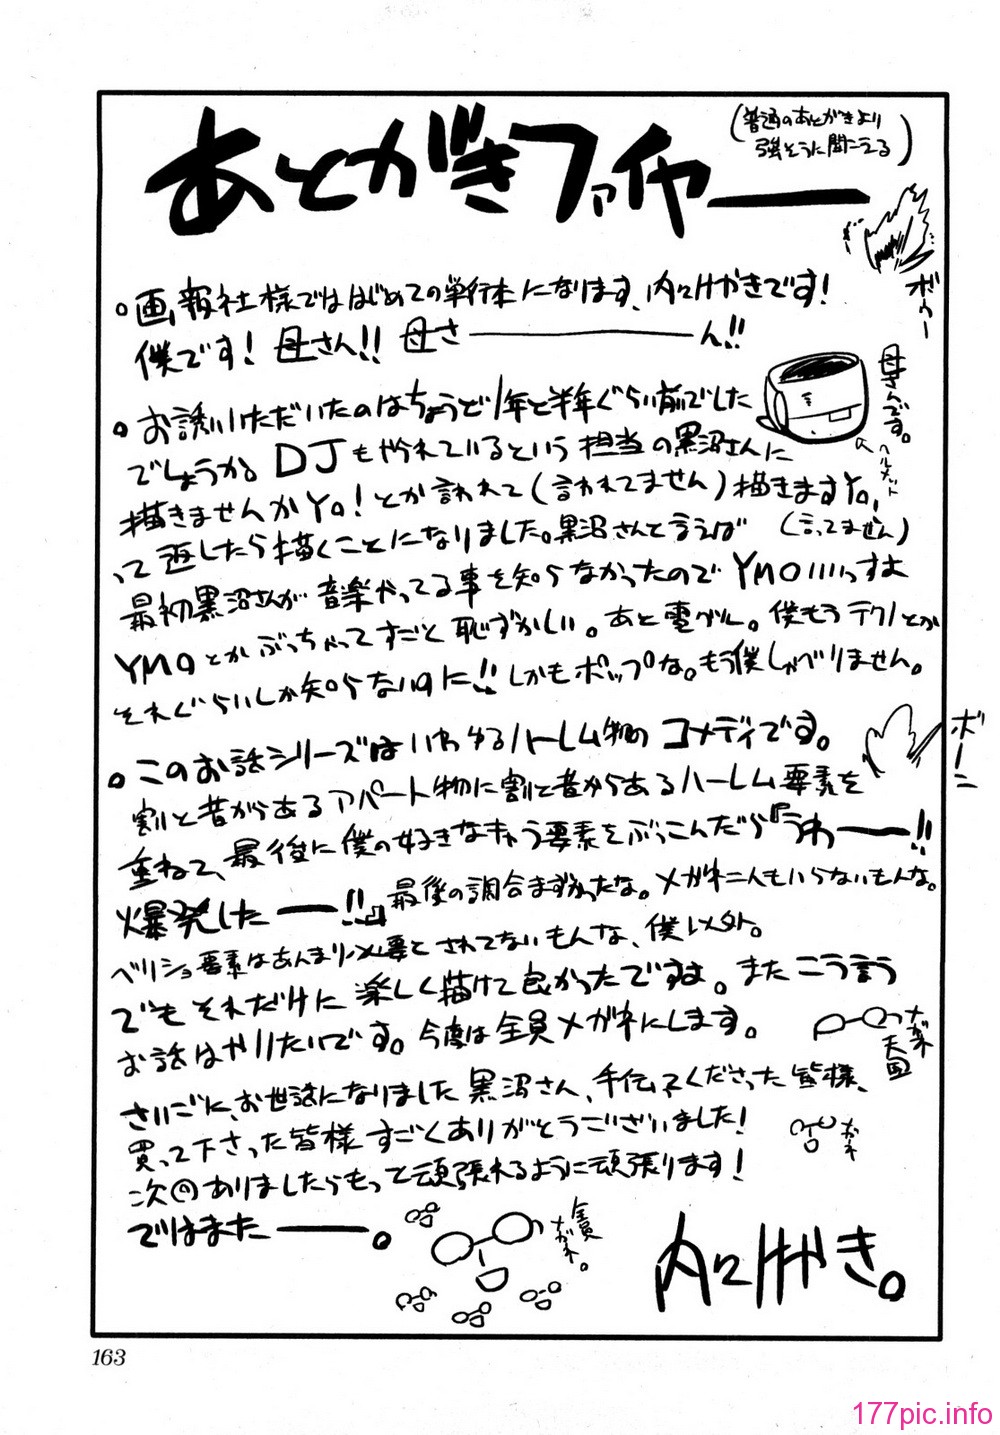 あとがきファイヤー
(普通のあとがきより
強そうに聞こえる)
ボウー
。画報社様でははじめての単行本になります、内々けやきです!
僕です! 母さん!! 母さ――――ん!!
。お誘いいただいたのはちょうど1年と半年ぐらい前でした
でしょうか。DJもやられているという担当の黒沼さんに
描きませんかYo!とか言われて(言われてません)描きますYo,
って返したら描くことになりました。黒沼さんと言えば (言ってません)
最初黒沼さんが音楽やってる事を知らなかったのでYMOいいっすよ
YMOとかぶっちゃってすごく恥ずかしい。あと電グル。僕もうテクノとか
それぐらいしか知らないのに!!しかもポップな。もう僕しゃべりません。
母さんです。
ヘルメット
。このお話シリーズはいわゆるハーレム物のコメディです。
割と昔からあるアパート物に割と昔からあるハーレム要素を
重ねて、最後に僕の好きなキャラ要素をぶっこんだら『うわーー!!
爆発したーー!!』最後の調合まずかったな。メガネ二人もいらないもんな。
ベリショ要素はあんまり必要とされてないもんな、僕以外。
でもそれだけに楽しく描けて良かったですね。またこう言う
お話はやりたいです。今度は全員メガネにします。
ボーン
メガネ天国
さいごに、お世話になりました黒沼さん、手伝ってくださった皆様、
買って下さった皆様すごくありがとうございました!
次回ありましたらもっと頑張れるように頑張ります!
ではまたーー。
全員
メガネ。
内々けやき。
163
177pic.info